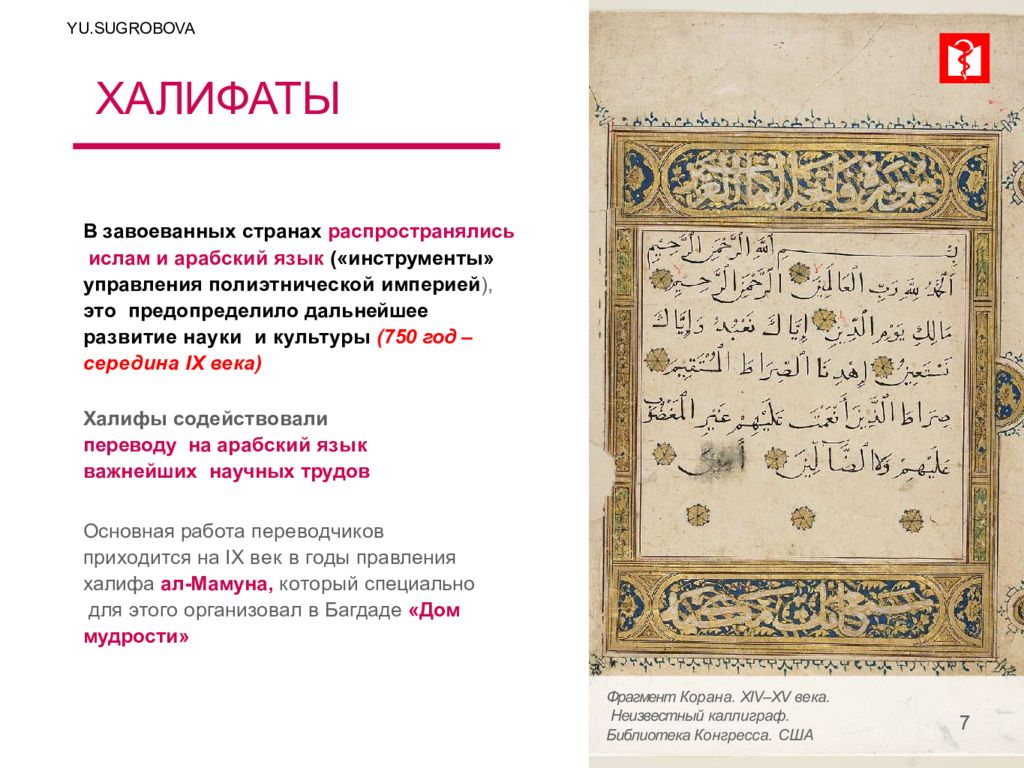 YU.SUGROBOVA
ХАЛИФАТЫ
В завоеванных странах распространялись
ислам и арабский язык («инструменты»
управления полиэтнической империей),
это предопределило дальнейшее
развитие науки и культуры (750 год –
середина IX века)
Халифы содействовали
переводу на арабский язык
важнейших научных трудов
Основная работа переводчиков
приходится на IX век в годы правления
халифа ал-Мамуна, который специально
для этого организовал в Багдаде «Дом
мудрости»
بِسْمِ اللَّهِ الرَّحْمَنِ الرَّحِيمِ
الْحَمْدُ لِلَّهِ رَبِّ الْعَالَمِينَ الرَّحْمَنِ الرَّحِيمِ
مَالِكِ يَوْمِ الدِّينِ إِيَّاكَ نَعْبُدُ وَإِيَّاكَ
نَسْتَعِينُ اِهْدِنَا الصِّرَاطَ الْمُسْتَقِيمَ
صِرَاطَ الَّذِينَ أَنْعَمْتَ عَلَيْهِمْ غَيْرِ الْمَغْضُوبِ
عَلَيْهِمْ وَلَا الضَّالِّينَ
Фрагмент Корана. XIV–XV века.
Неизвестный каллиграф.
Библиотека Конгресса. США
7